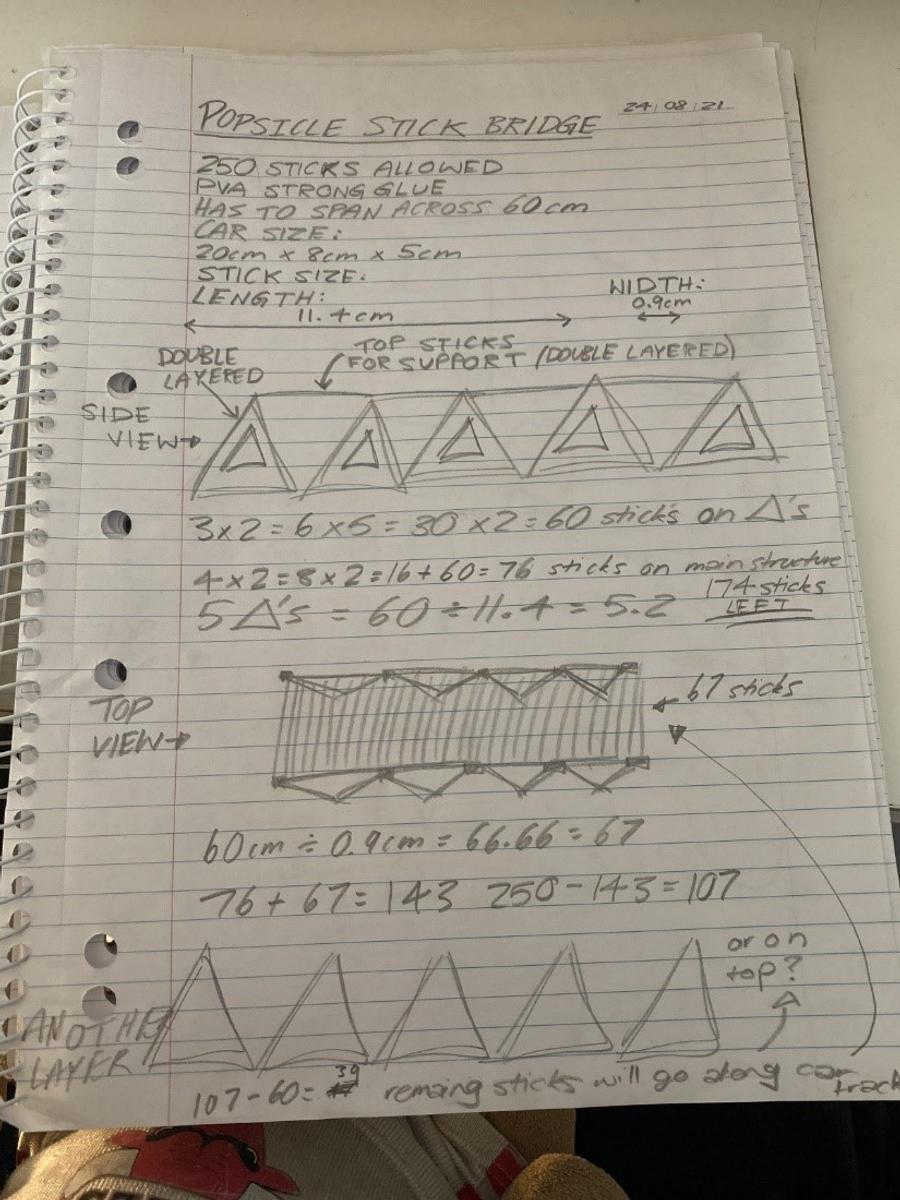 POPSICLE STICK BRIDGE 24/08/21
250 STICKS ALLOWED
PVA STRONG GLUE
HAS TO SPAN ACROSS 60cm
CAR SIZE:
20cm x 8cm x 5cm
STICK SIZE:
LENGTH:
11.4cm
WIDTH:
0.9cm
DOUBLE
LAYERED
TOP STICKS
FOR SUPPORT (DOUBLE LAYERED)
SIDE
VIEW→
3x2=6x5=30x2=60 sticks on Δ's
4x2=8x2=16+60=76 sticks on main structure
174 sticks
LEFT
5Δ's = 60÷11.4 = 5.2
TOP
VIEW→
67 sticks
60cm ÷ 0.9cm = 66.66 = 67
76+67=143 250-143=107
or on
top?
ANOTHER
LAYER
107-60= 39 remaing sticks will go along car
track